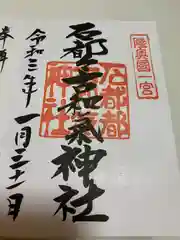 陸奥國一宮
石都々古和氣神社
石都都
神社
令和三年
一月三十一日
奉拝